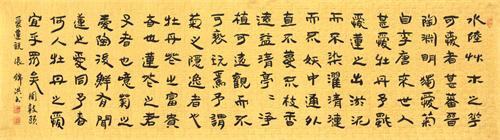 水陸艸木之花
可愛者甚蕃晉
陶淵明獨愛菊
自李唐來世人
甚愛牡丹予獨
愛蓮之出淤泥
而不染濯清漣
而不妖中通外
直不蔓不枝香
遠益清亭亭淨
植可遠觀而不
可褻玩焉予謂
菊之隱逸者也
牡丹花之富貴
者也蓮花之君
子者也噫菊之
愛陶後鮮有聞
蓮之愛同予者
何人牡丹之愛
宜乎眾矣 周敦頤
愛蓮說 張錦洪書